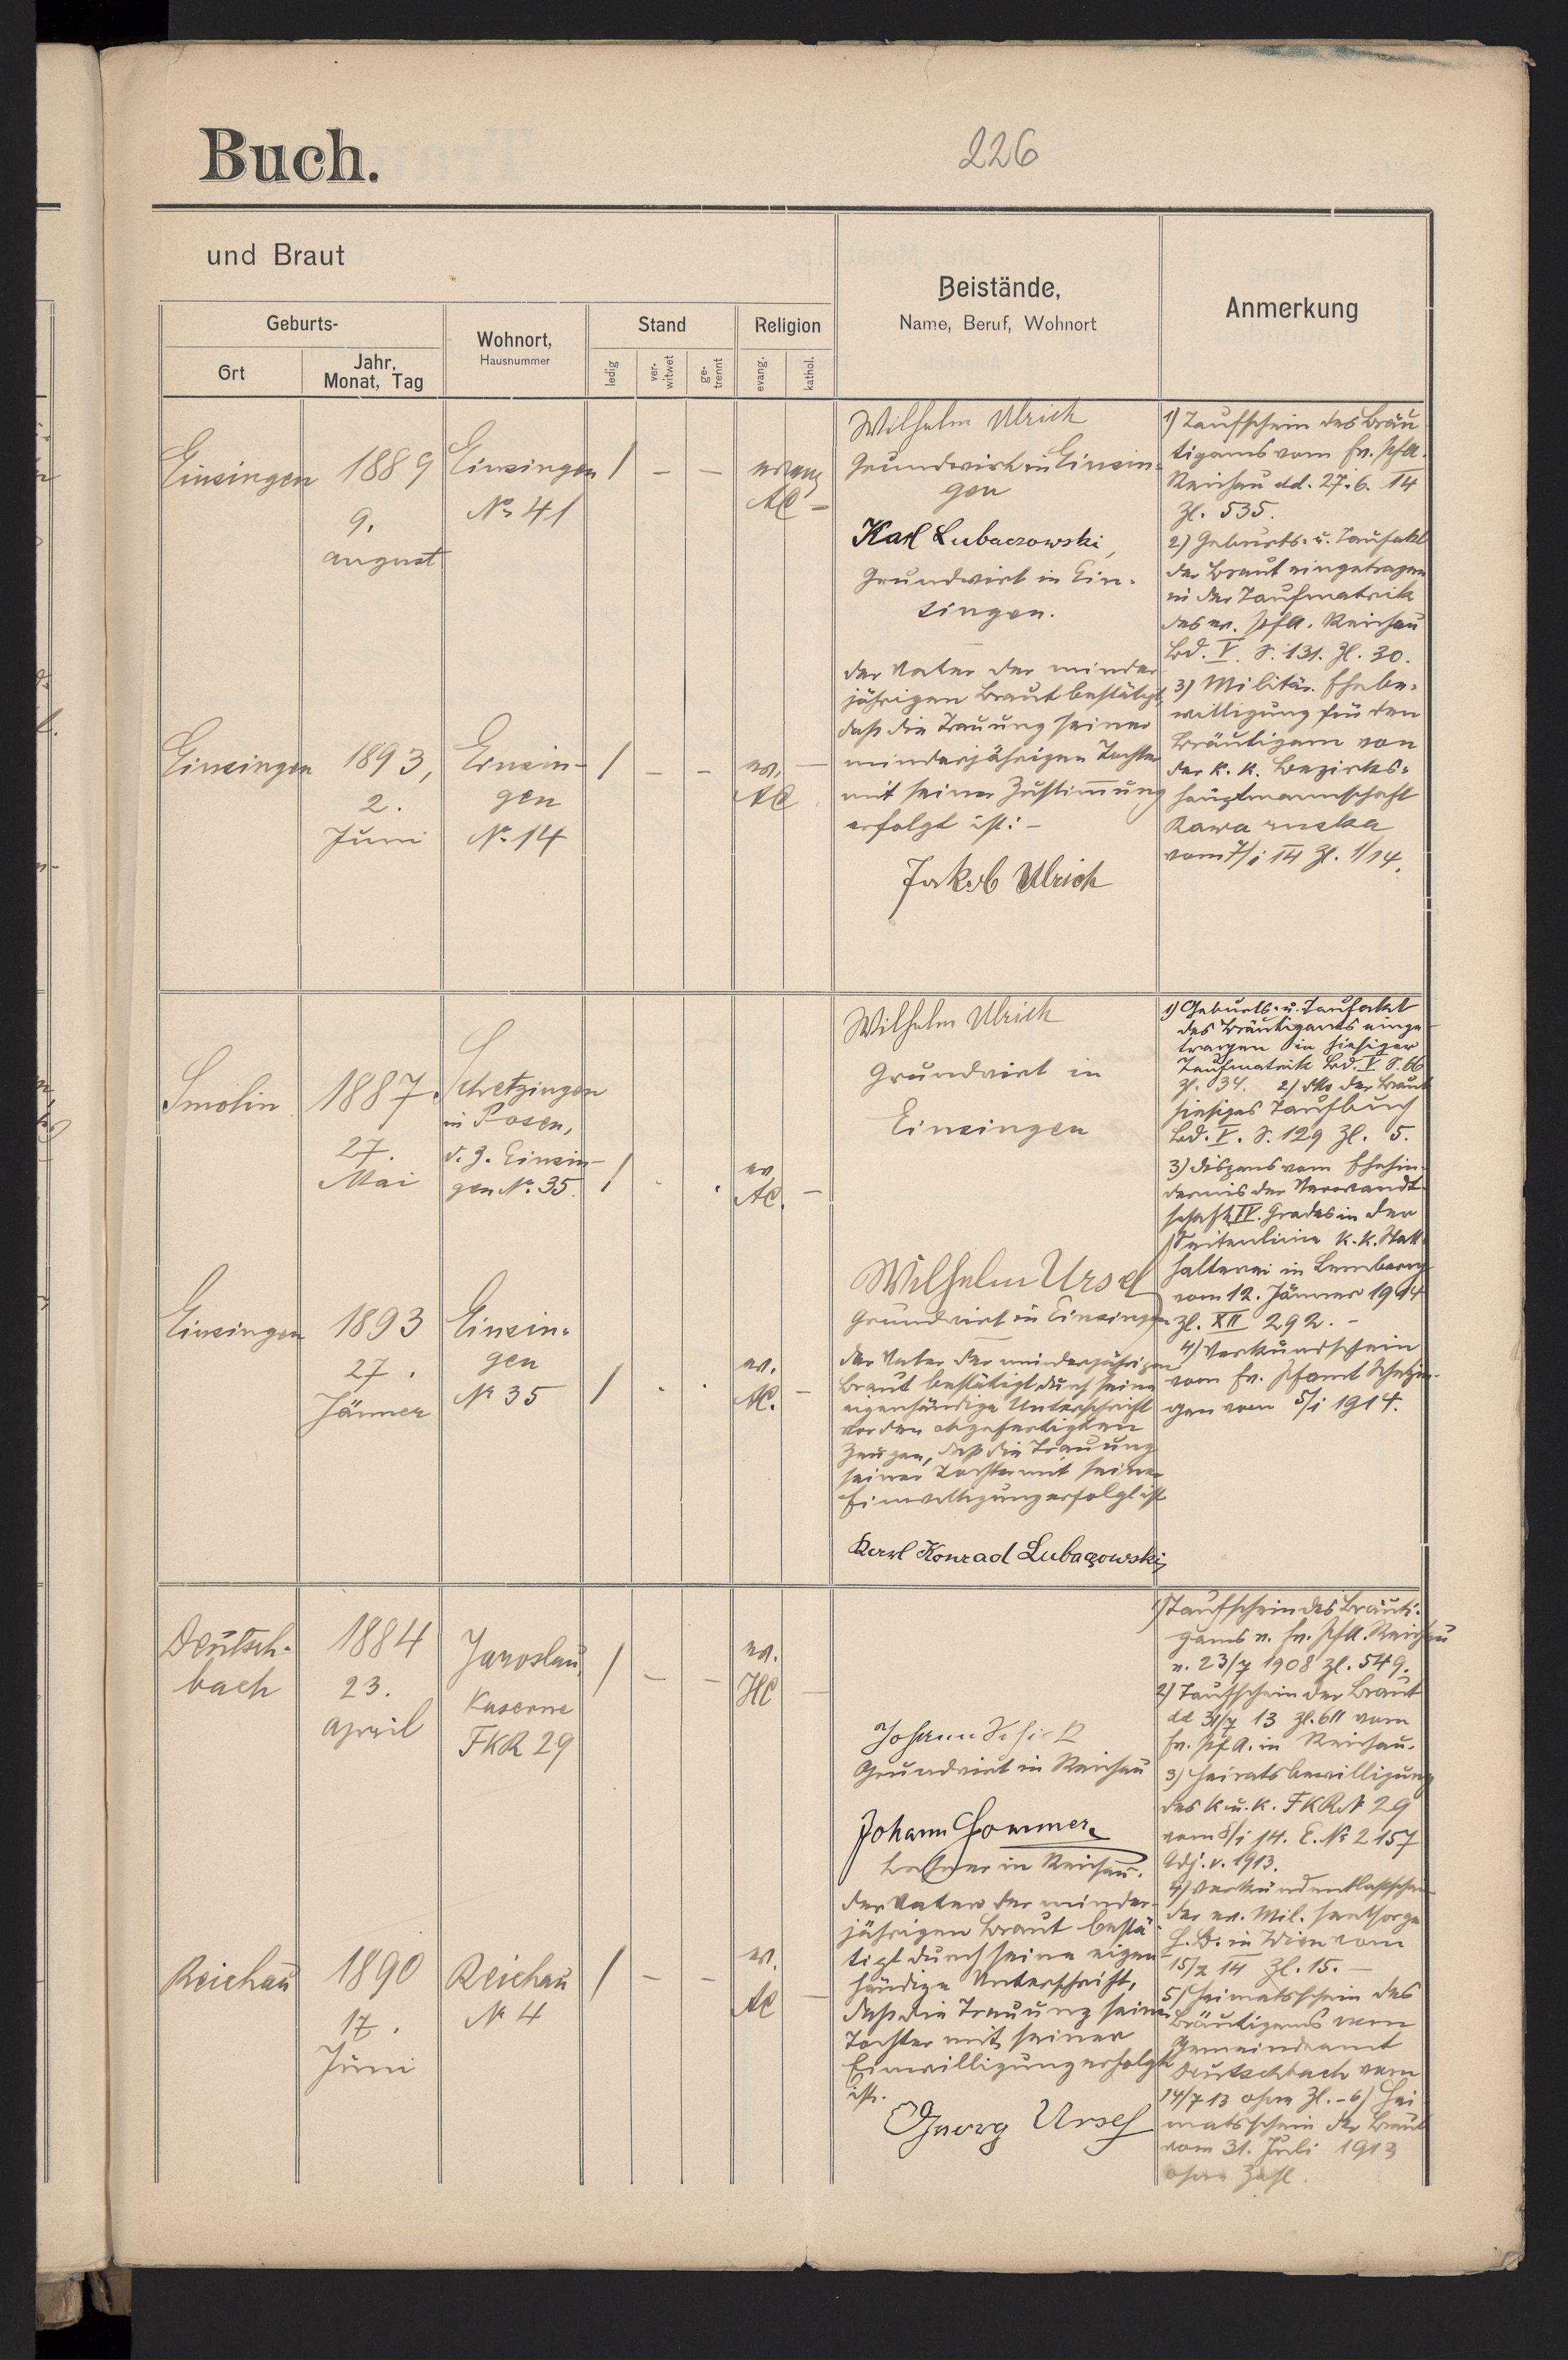 Buch.
226
und Braut
Geburts-
Ort
Jahr, Monat, Tag
Wohnort,
Hausnummer
Stand
ledig
ver-witwet
ge-trennt
Religion
evang.
kathol.
Beistände,
Name, Beruf, Wohnort
Anmerkung
Einsingen
1889
9.
august
Einsingen
No 41
/ — —
evang
AC —
Wilhelm Ulrich
Grundwirt in Einsin-
gen
Karl Lubaczowski,
Grundwirt in Ein-
singen.
1) Taufschein des Bräu
tigams vom Ev. Pfa.
Reichau dd. 27.6. 14
Zl. 535.
2) Geburts- u. Taufakt
der Braut eingetragen
in der Taufmatrik
des ev. Pfa. Reichau
Bd. V. S. 131. Zl. 30.
3) Militär. Ehebe-
willigung für den
Bräutigam von
der k. k. Bezirks-
hauptmannschaft
Rawa ruska
vom 7/i 14 Zl. 1/14.
Einsingen
1893,
2.
Juni
Einsin-
gen
No 14
/ — —
ev. —
AC
der Vater der minder
jährigen Braut bestätigt,
daß die Trauung seiner
minderjährigen Tochter
mit seiner Zustimmung
erfolgt ist: —
Jakob Ulrich
Smolin
1887.
27.
Mai
Schetzingen
in Posen,
d. Z. Einsin-
gen No 35.
/ . .
ev.
AC. —
Wilhelm Ulrich
Grundwirt in
Einsingen
1) Geburts- u. Taufakt
des Bräutigams einge
tragen in hiesiger
Taufmatrik Bd. V S. 66
Zl. 34. 2) dto der Braut
hiesiges Taufbuch
Bd. V. S. 129 Zl. 5.
3) Dispens vom Ehehin-
dernis der Verwandt-
schaft IV. Grades in der
Seitenlinie k. k. Statt
halterei in Lemberg
vom 12. Jänner 1914
Zl. XII 292. —
4) Verkündschein
vom Ev. Pfarramt Schetzin-
gen vom 5/i 1914.
Einsingen
1893
27.
Jänner
Einsin-
gen
No 35
/ . .
ev.
AC. —
Wilhelm Ursel
Grundwirt in Einsingen
der Vater der minderjährigen
Braut bestätigt durch seine
eigenhändige Unterschrift
vor den abgefertigten
Zeugen, daß die Trauung
seiner Tochter mit seiner
Einwilligung erfolgt ist
Karl Konrad Lubaczowski,
Deutsch-
bach
1884
23.
april
Jaroslau,
Kaserne
FKR 29
/ — —
ev.
HC —
Johann Schick
Grundwirt in Reichau
Johann Sommer
in Reichau.
1) Taufschein des Bräuti-
gams v. Ev. Pfa. Reichau
v. 23/7 1908 Zl. 549.
2) Taufschein der Braut
dd 31/7 13 Zl. 611 vom
Ev. Pf A. in Reichau.
3) Heiratsbewilligung
des k. u. k. FKR No 29
vom 8/i 14. E. No 2157
Adj. v. 1913.
4) Verkündentlaßschein
der ev. Mil. Seelsorge
H. B. in Wien vom
15/2 14 Zl. 15. —
5) Heimatschein des
Bräutigams vom
Gemeindeamt
Deutschbach vom
14/7 13 ohne Zl. — 6) Hei
matsschein der Braut
vom 31. Juli 1913
ohne Zahl.
Reichau
1890
17.
Juni
Reichau
No 4
/ — —
ev.
AC —
der Vater der minder-
jährigen Braut bestä-
tigt durch seine eigen-
händige Unterschrift,
daß die Trauung seiner
Tochter mit seiner
Einwilligung erfolgt
ist.
Georg Ursel